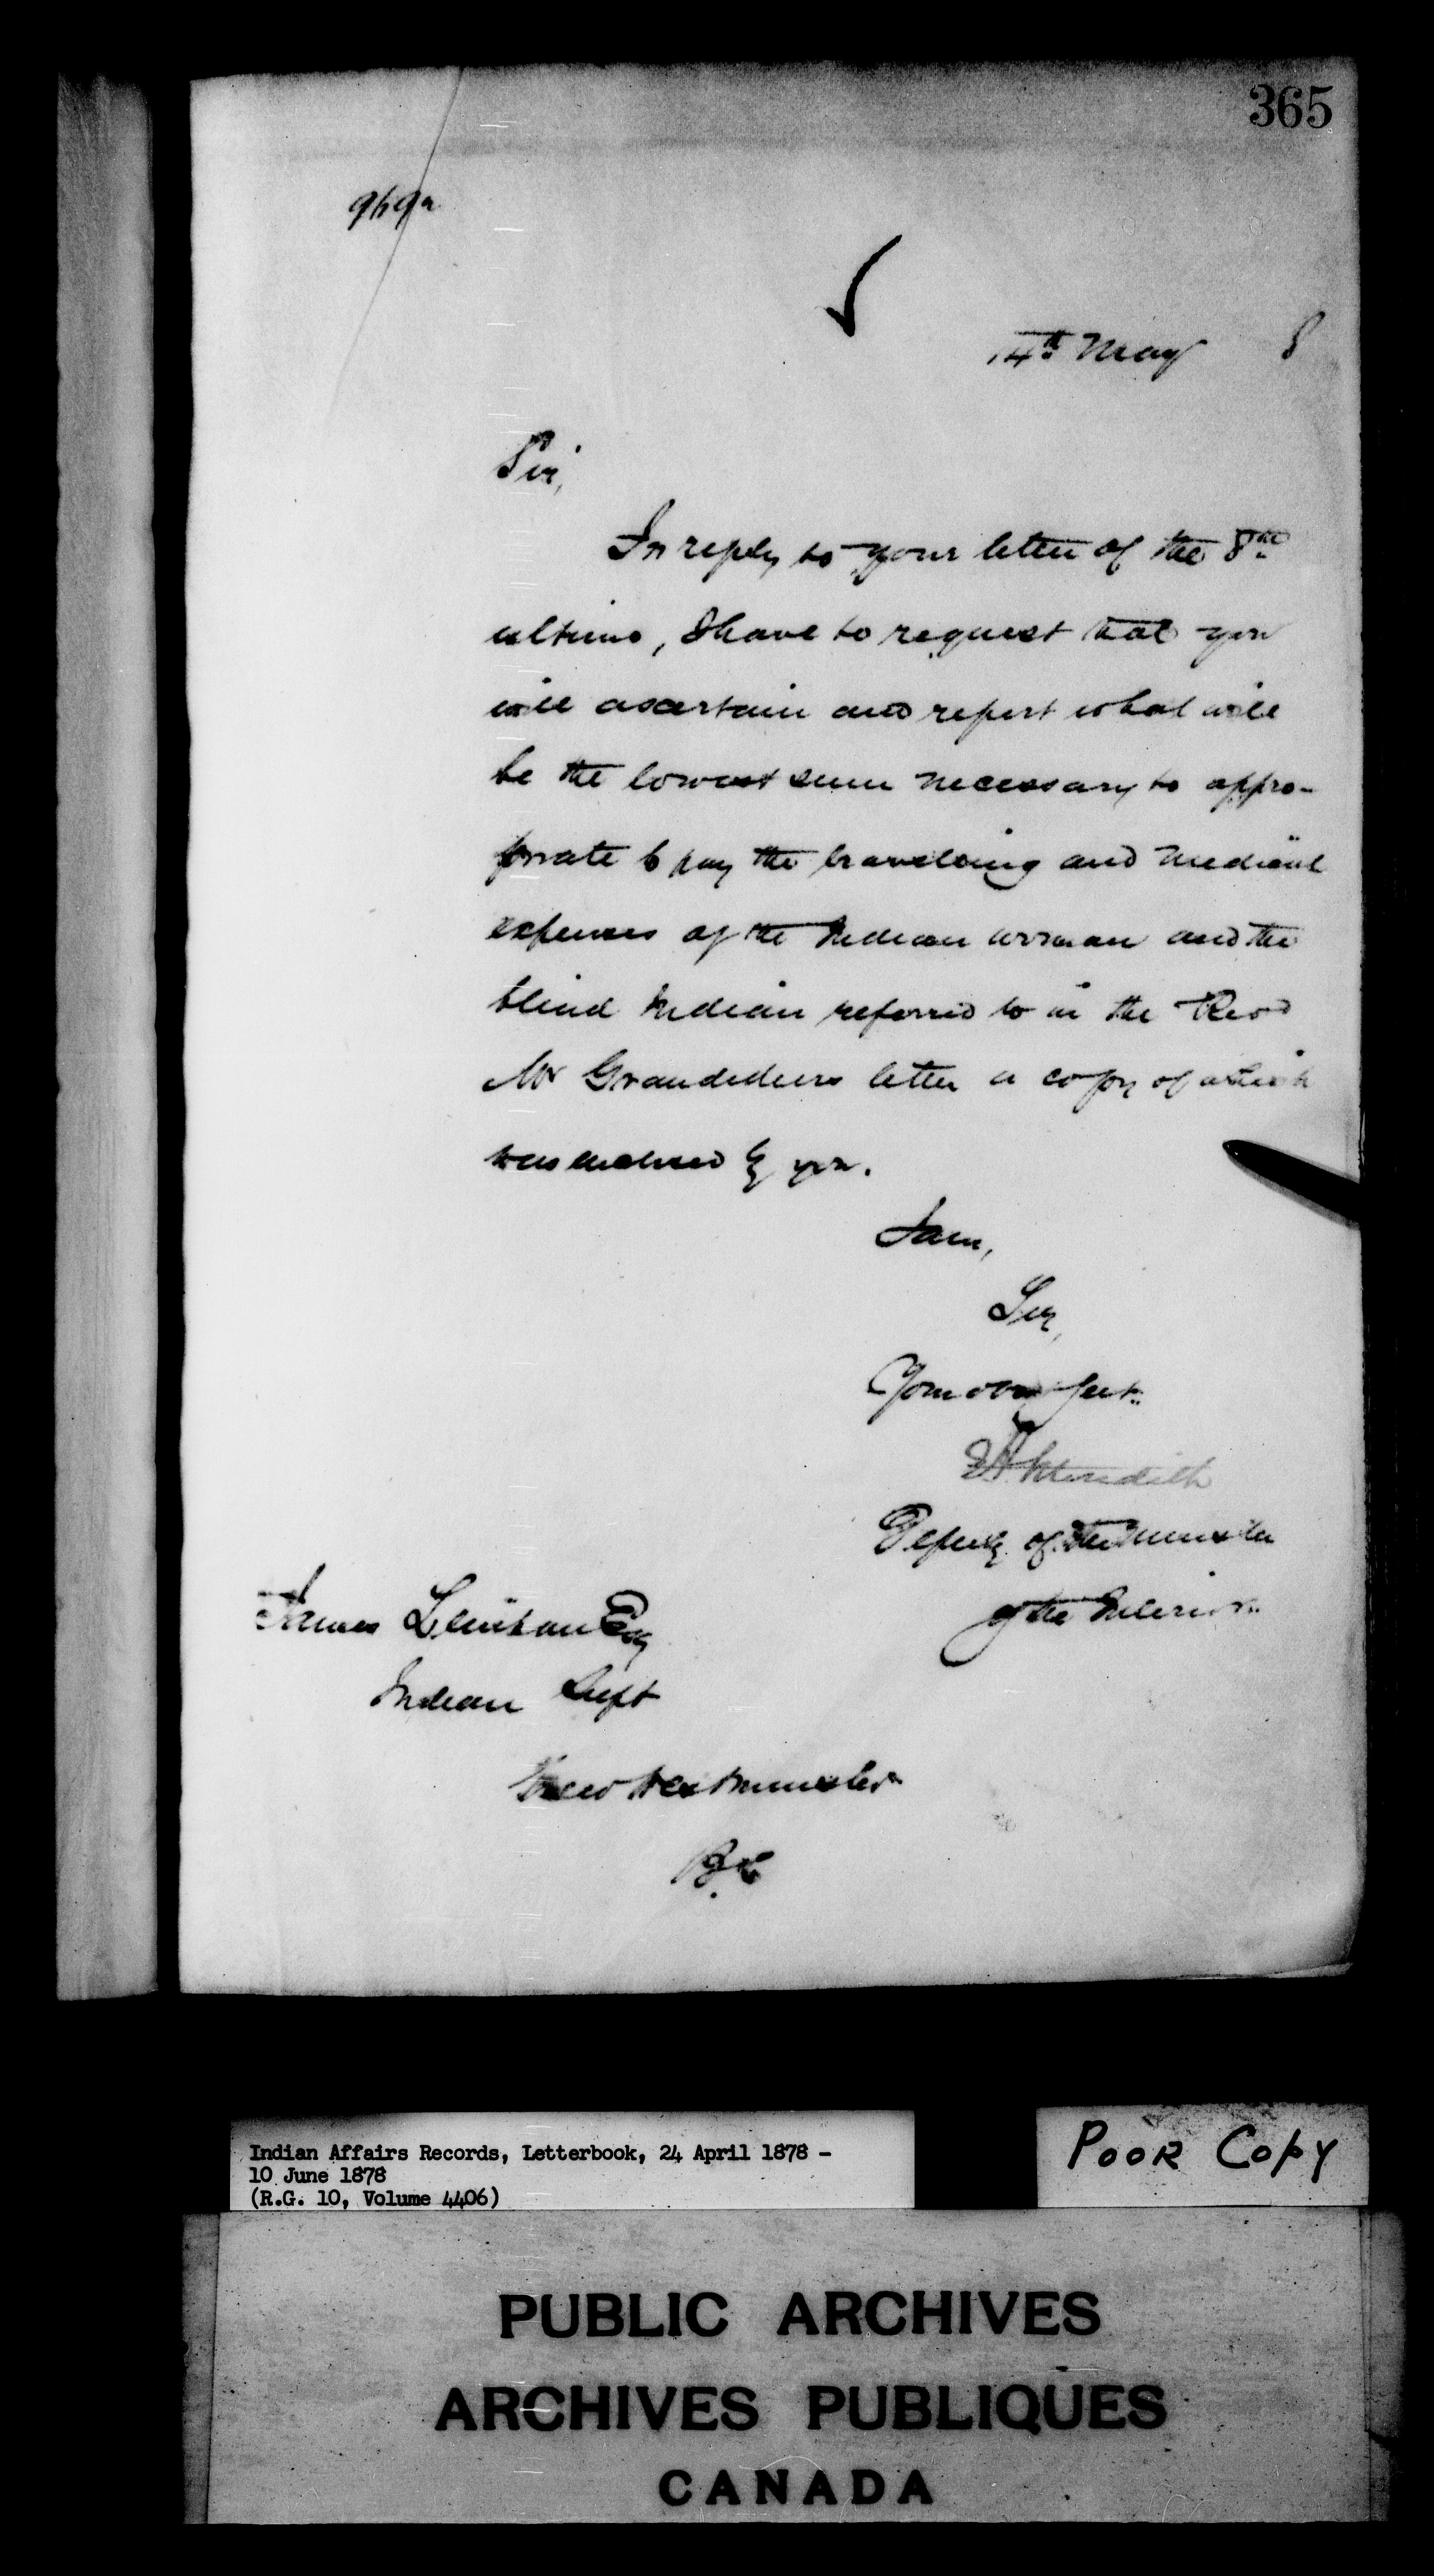 365
14th May 8
Sir,
In reply to your letter of the 8th
ultimo, I have to request that you
will ascertain and report what will
be the lowest sum necessary to appro-
priate to pay the travelling and medical
expenses of the Indian woman and the
blind Indian referred to in the Revd
Mr Grandidiers letter a copy of which
was enclosed by you.
I am,
Sir,
Your obt Sert.
E A Meredith
Deputy of the Minister
of the Interior.
James Lenihan Esq
Indian Supt
New Westminster
B.C
Indian Affairs Records, Letterbook, 24 April 1878 -
10 June 1878
(R.G. 10, Volume 4406)
POOR COPY
PUBLIC ARCHIVES
ARCHIVES PUBLIQUES
CANADA